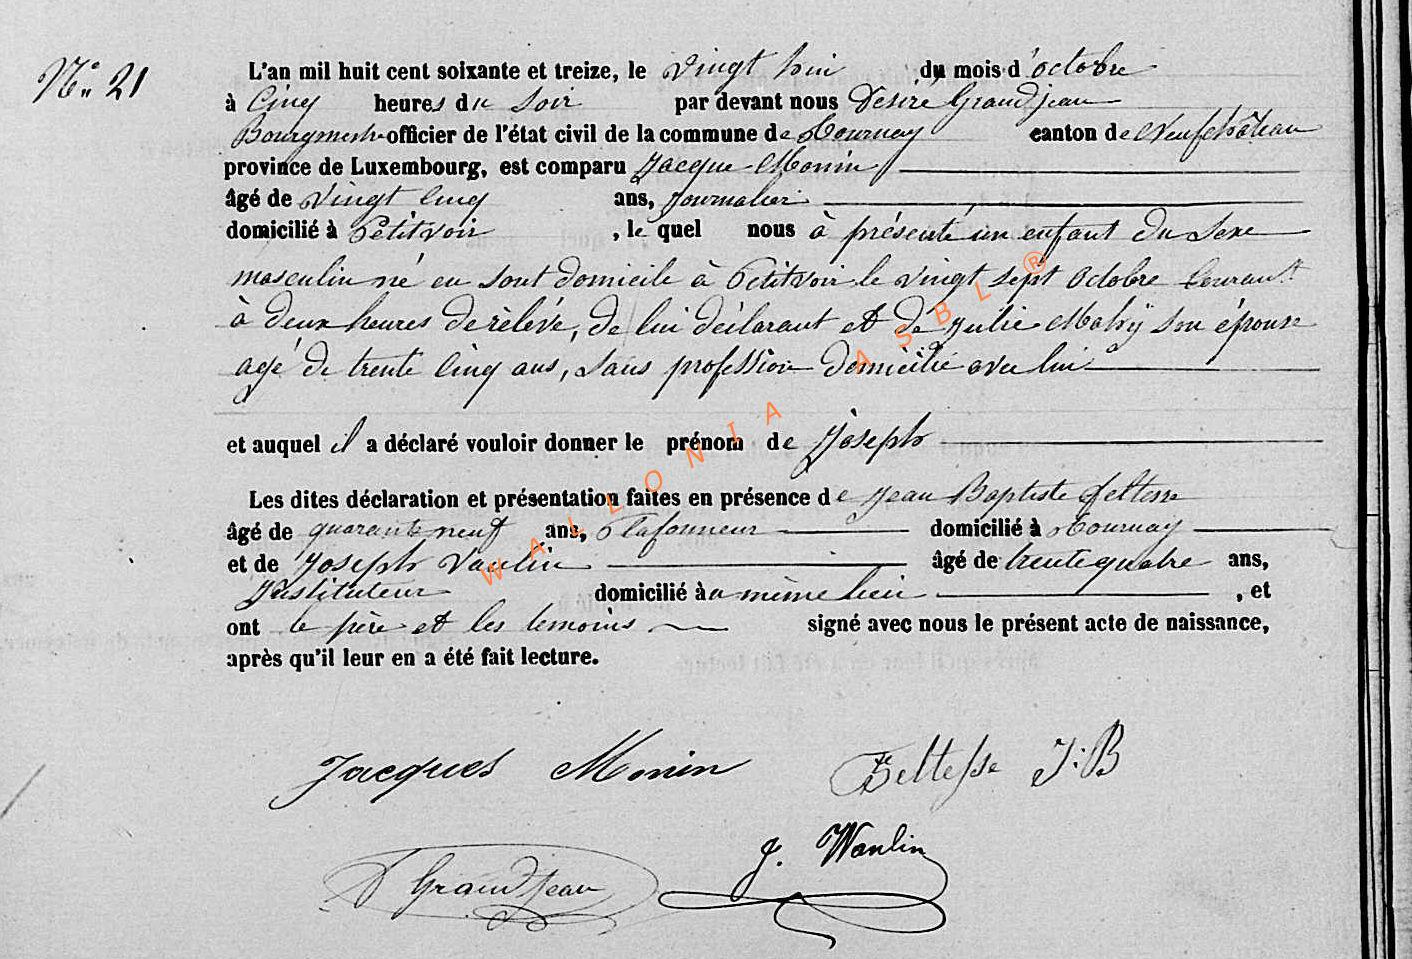 N° 21
L'an mil huit cent soixante et treize, le vingt huit du mois d'octobre
à cinq heures du soir par devant nous Désiré Grandjean
Bourgmestre officier de l'état civil de la commune de Tournay canton de Neufchâteau
province de Luxembourg, est comparu Jacque Monin
âgé de vingt cinq ans, journalier
domicilié à Petitvoir, le quel nous à présenté un enfant du sexe
masculin né en sont domicile à Petitvoir le vingt sept octobre courant
à deux heures de rélévé, de lui déclarant et de Julie Mahÿ son épouse
agé de trente cinq ans, sans profession domicilié avec lui
et auquel il a déclaré vouloir donner le prénom de Joseph
Les dites déclaration et présentation faites en présence de Jean Baptiste Feltesse
âgé de quarante neuf ans, Plafonneur domicilié à Tournay
et de Joseph Vanlin âgé de trente quatre ans,
Instituteur domicilié à u même lieu, et
ont le père et les temoins signé avec nous le présent acte de naissance,
après qu'il leur en a été fait lecture.
Jacques Monin Feltesse J:B
J. Wanlin
D Grandjean
WALLONIA ASBL ®